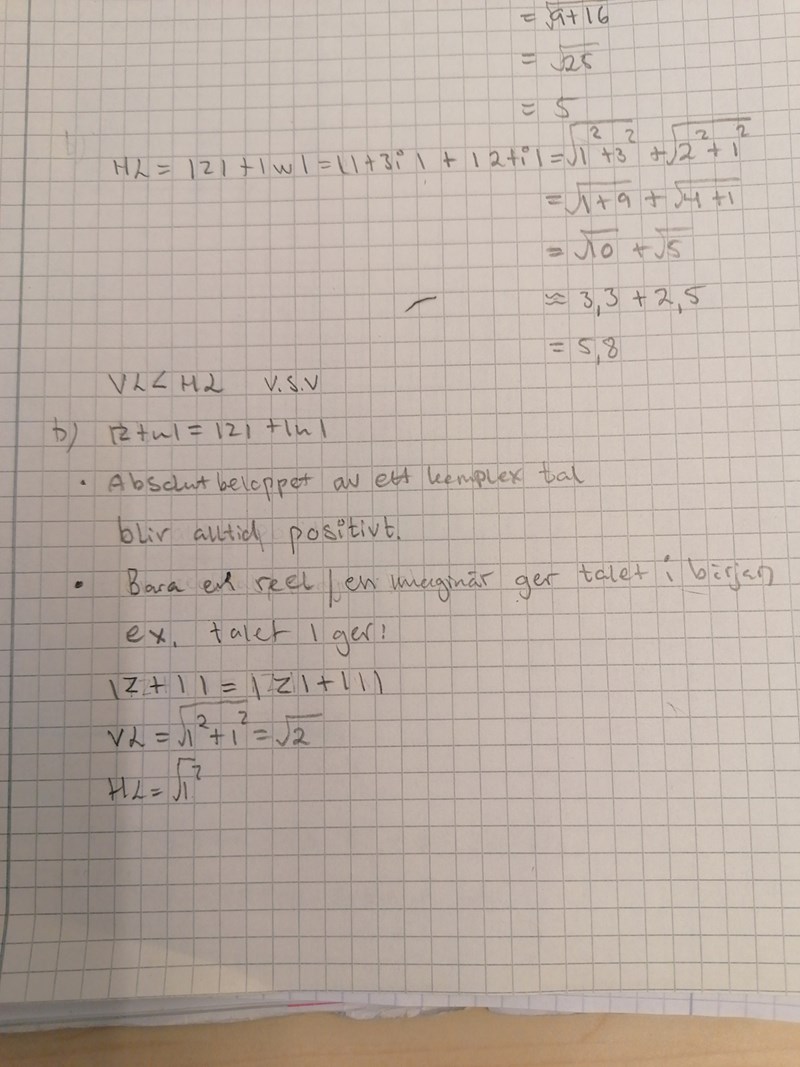 = √9+16
= √25
= 5
HL = |z| + |w| = |1+3i| + |2+i| = √1²+3² + √2²+1²
= √1+9 + √4+1
= √10 + √5
≈ 3,3 + 2,5
= 5,8
VL < HL V.S.V
b) |z+w| = |z| + |w|
• Absolutbeloppet av ett komplex tal
blir alltid positivt.
• Bara en reel / en imaginär ger talet i början
ex. talet 1 ger:
|z+1| = |z|+|1|
VL = √1²+1² = √2
HL = √1²